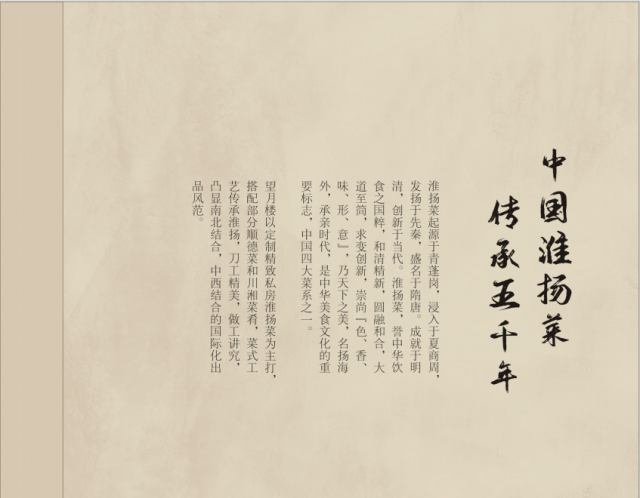 中国淮扬菜
传承五千年
淮扬菜起源于青蓬岗，浸入于夏商周，
发扬于先秦，盛名于隋唐。成就于明
清，创新于当代。淮扬菜，誉中华饮
食之国粹，和清精新，圆融和合，大
道至简，求变创新，崇尚『色、香、
味、形、意』，乃天下之美，名扬海
外，承亲时代，是中华美食文化的重
要标志，中国四大菜系之一。
望月楼以定制精致私房淮扬菜为主打，
搭配部分顺德菜和川湘菜肴，菜式工
艺传承淮扬，刀工精美，做工讲究，
凸显南北结合，中西结合的国际化出
品风范。